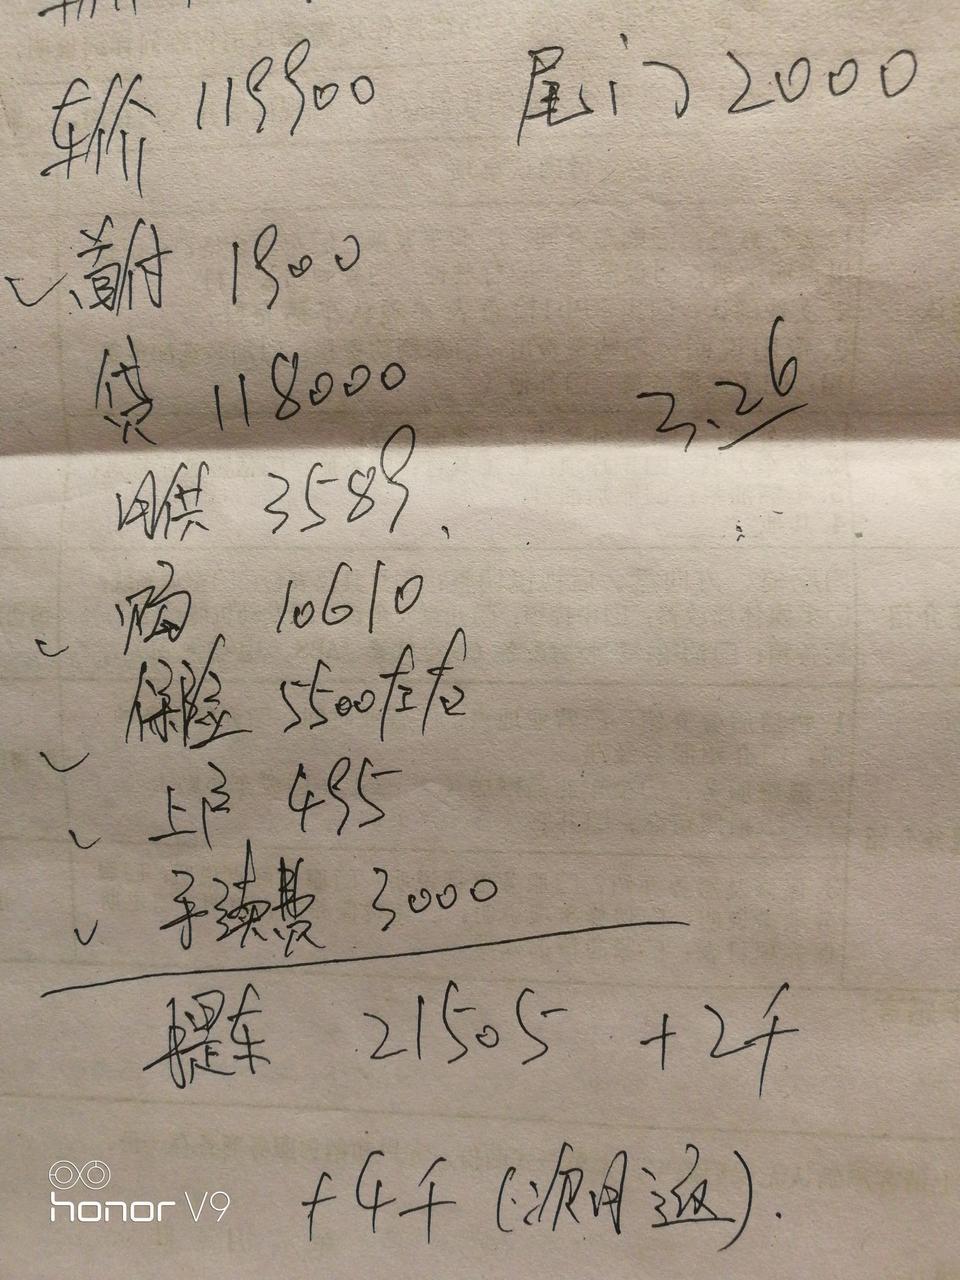 车价 119900 尾门 2000
首付 1900
贷 118000
3.26
月供 3589
购 10610
保险 5500左右
上户 495
手续费 3000
提车 21505 +2千
+4千 (次月返).
honor V9